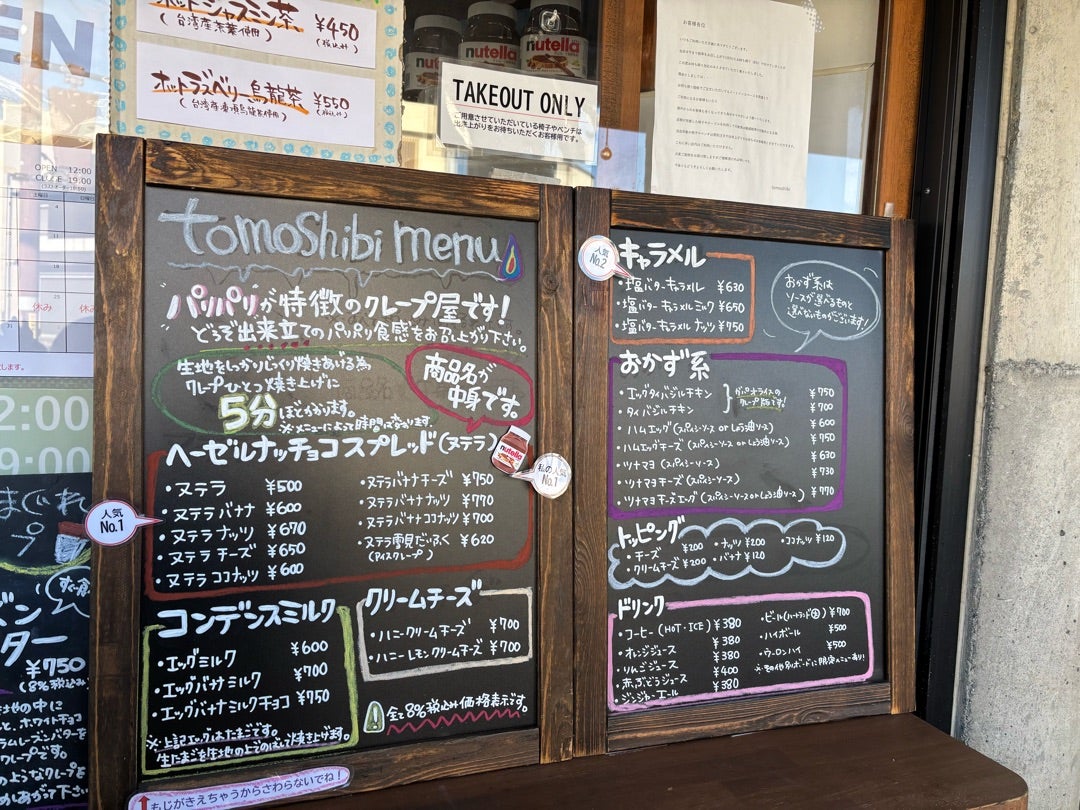 ホットジャスミン茶 ¥450
(台湾産茶葉使用) (税込み)
ホットラズベリー烏龍茶 ¥550
nutella
nutella
nutella
TAKEOUT ONLY
ご用意させていただいている椅子やベンチは
出来上がりをお待ちいただくお客様用です。
お客様各位
tomoshibi
OPEN 12:00
CLOSE 19:00
休み
休み
12:00
19:00
tomoshibi menu
パリパリが特徴のクレープ屋です!
どうぞ出来立てのパリパリ食感をお召し上がり下さい。
生地をしっかりじっくり焼きあげる為
クレープひとつ焼き上げに
5分ほどかかります。
※メニューによって時間が変わります
商品名が
中身です。
ヘーゼルナッチョコスプレッド(ヌテラ)
nutella
私の人気
No.1
人気
No.1
・ヌテラ ¥500
・ヌテラバナナ ¥600
・ヌテラナッツ ¥670
・ヌテラチーズ ¥650
・ヌテラココナッツ ¥600
・ヌテラバナナチーズ ¥750
・ヌテラバナナナッツ ¥770
・ヌテラバナナココナッツ ¥700
・ヌテラ雪見だいふく ¥620
(アイスクレープ)
コンデンスミルク
・エッグミルク ¥600
・エッグバナナミルク ¥700
・エッグバナナミルクチョコ ¥750
※上記エッグはたまごです。
生たまごを生地の上でのばして焼き上げます。
クリームチーズ
・ハニークリームチーズ ¥700
・ハニーレモンクリームチーズ ¥700
全て8%税込み価格表示です。
もじがきえちゃうからさわらないでね!
人気
No.2
キャラメル
・塩バターキャラメル ¥630
・塩バターキャラメルミルク ¥650
・塩バターキャラメルナッツ ¥750
おかず系は
ソースが選べるものと
選べないものがございます!
おかず系
・エッグタイバジルチキン ¥750
・タイバジルチキン ¥700
ガパオライスの
クレープ版です!
・ハムエッグ(スパイシーソース orしょう油ソース) ¥600
・ハムエッグチーズ(スパイシーソース orしょう油ソース) ¥750
・ツナマヨ(スパイシーソース) ¥630
・ツナマヨチーズ(スパイシーソース) ¥730
・ツナマヨチーズエッグ(スパイシーソース orしょう油ソース) ¥770
トッピング
・チーズ ¥200 ・ナッツ ¥200 ・ココナッツ ¥120
・クリームチーズ ¥200 ・バナナ ¥120
ドリンク
・コーヒー(HOT・ICE) ¥380
・オレンジジュース ¥380
・りんごジュース ¥380
・赤ぶどうジュース ¥400
・ジンジャーエール ¥380
・ビール(ハートランド) ¥700
・ハイボール ¥500
・ウーロンハイ ¥500
※その他別ボードに限定メニューあり!
¥750
(8%税込み)